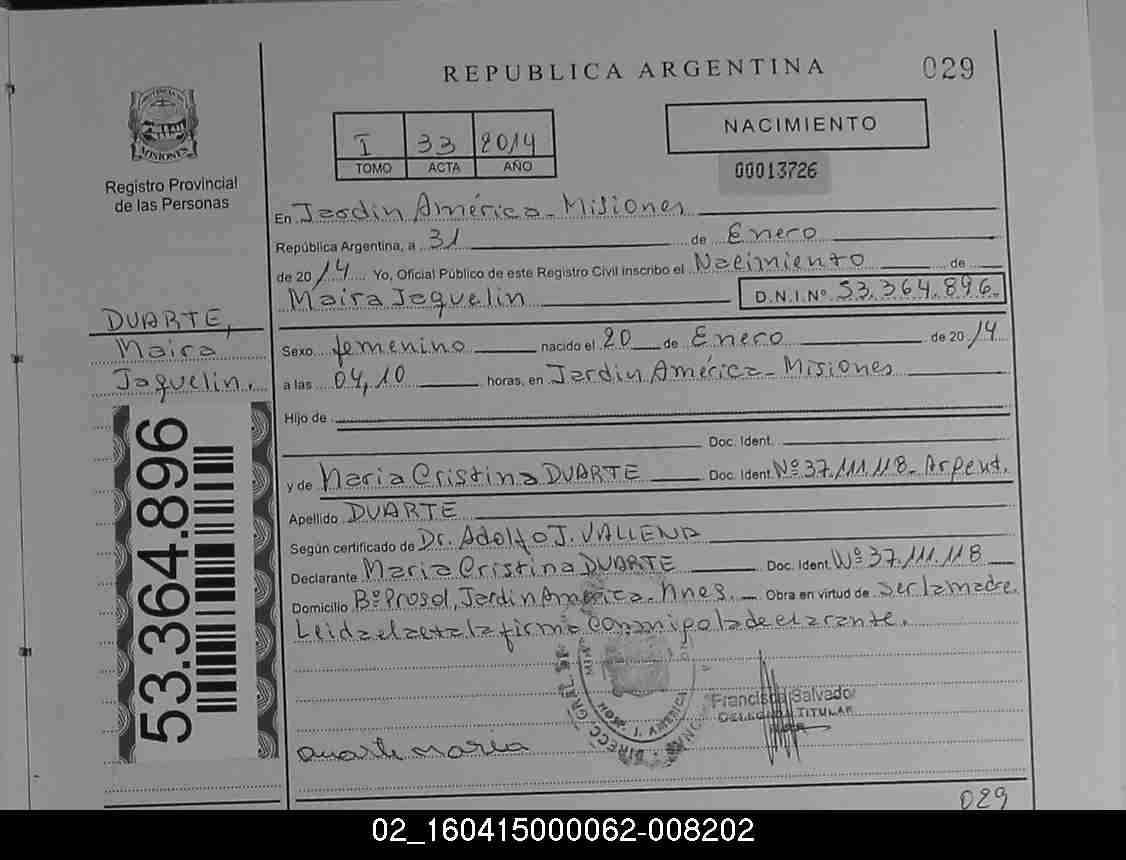 REPUBLICA ARGENTINA
029
I 33 2014
TOMO ACTA AÑO
NACIMIENTO
00013726
PROVINCIA DE
MISIONES
Registro Provincial
de las Personas
En Jardin América - Misiones
República Argentina, a 31 de Enero
de 2014 Yo, Oficial Público de este Registro Civil inscribo el Nacimiento de
Maira Jaquelin D.N.I.Nº 53.364.896.
DUARTE,
Maira
Jaquelin.
Sexo femenino nacido el 20 de Enero de 2014
a las 04,10 horas, en Jardin América - Misiones
Hijo de
Doc. Ident.
y de Maria Cristina DUARTE Doc. Ident. Nº 37.111.118 - Argent.
Apellido DUARTE
Según certificado de Dr. Adolfo J.
Declarante Maria Cristina DUARTE Doc. Ident. Nº 37.111.118
Domicilio Bº Prosol, Jardin América - Mnes. Obra en virtud de ser la madre.
Leida el acta la firma conmigo la declarante.
53.364.896
Salvador
TITULAR
HOSP. J. AMERICA
DIRECC. GRAL. DE
Duarte maria
029
02_160415000062-008202